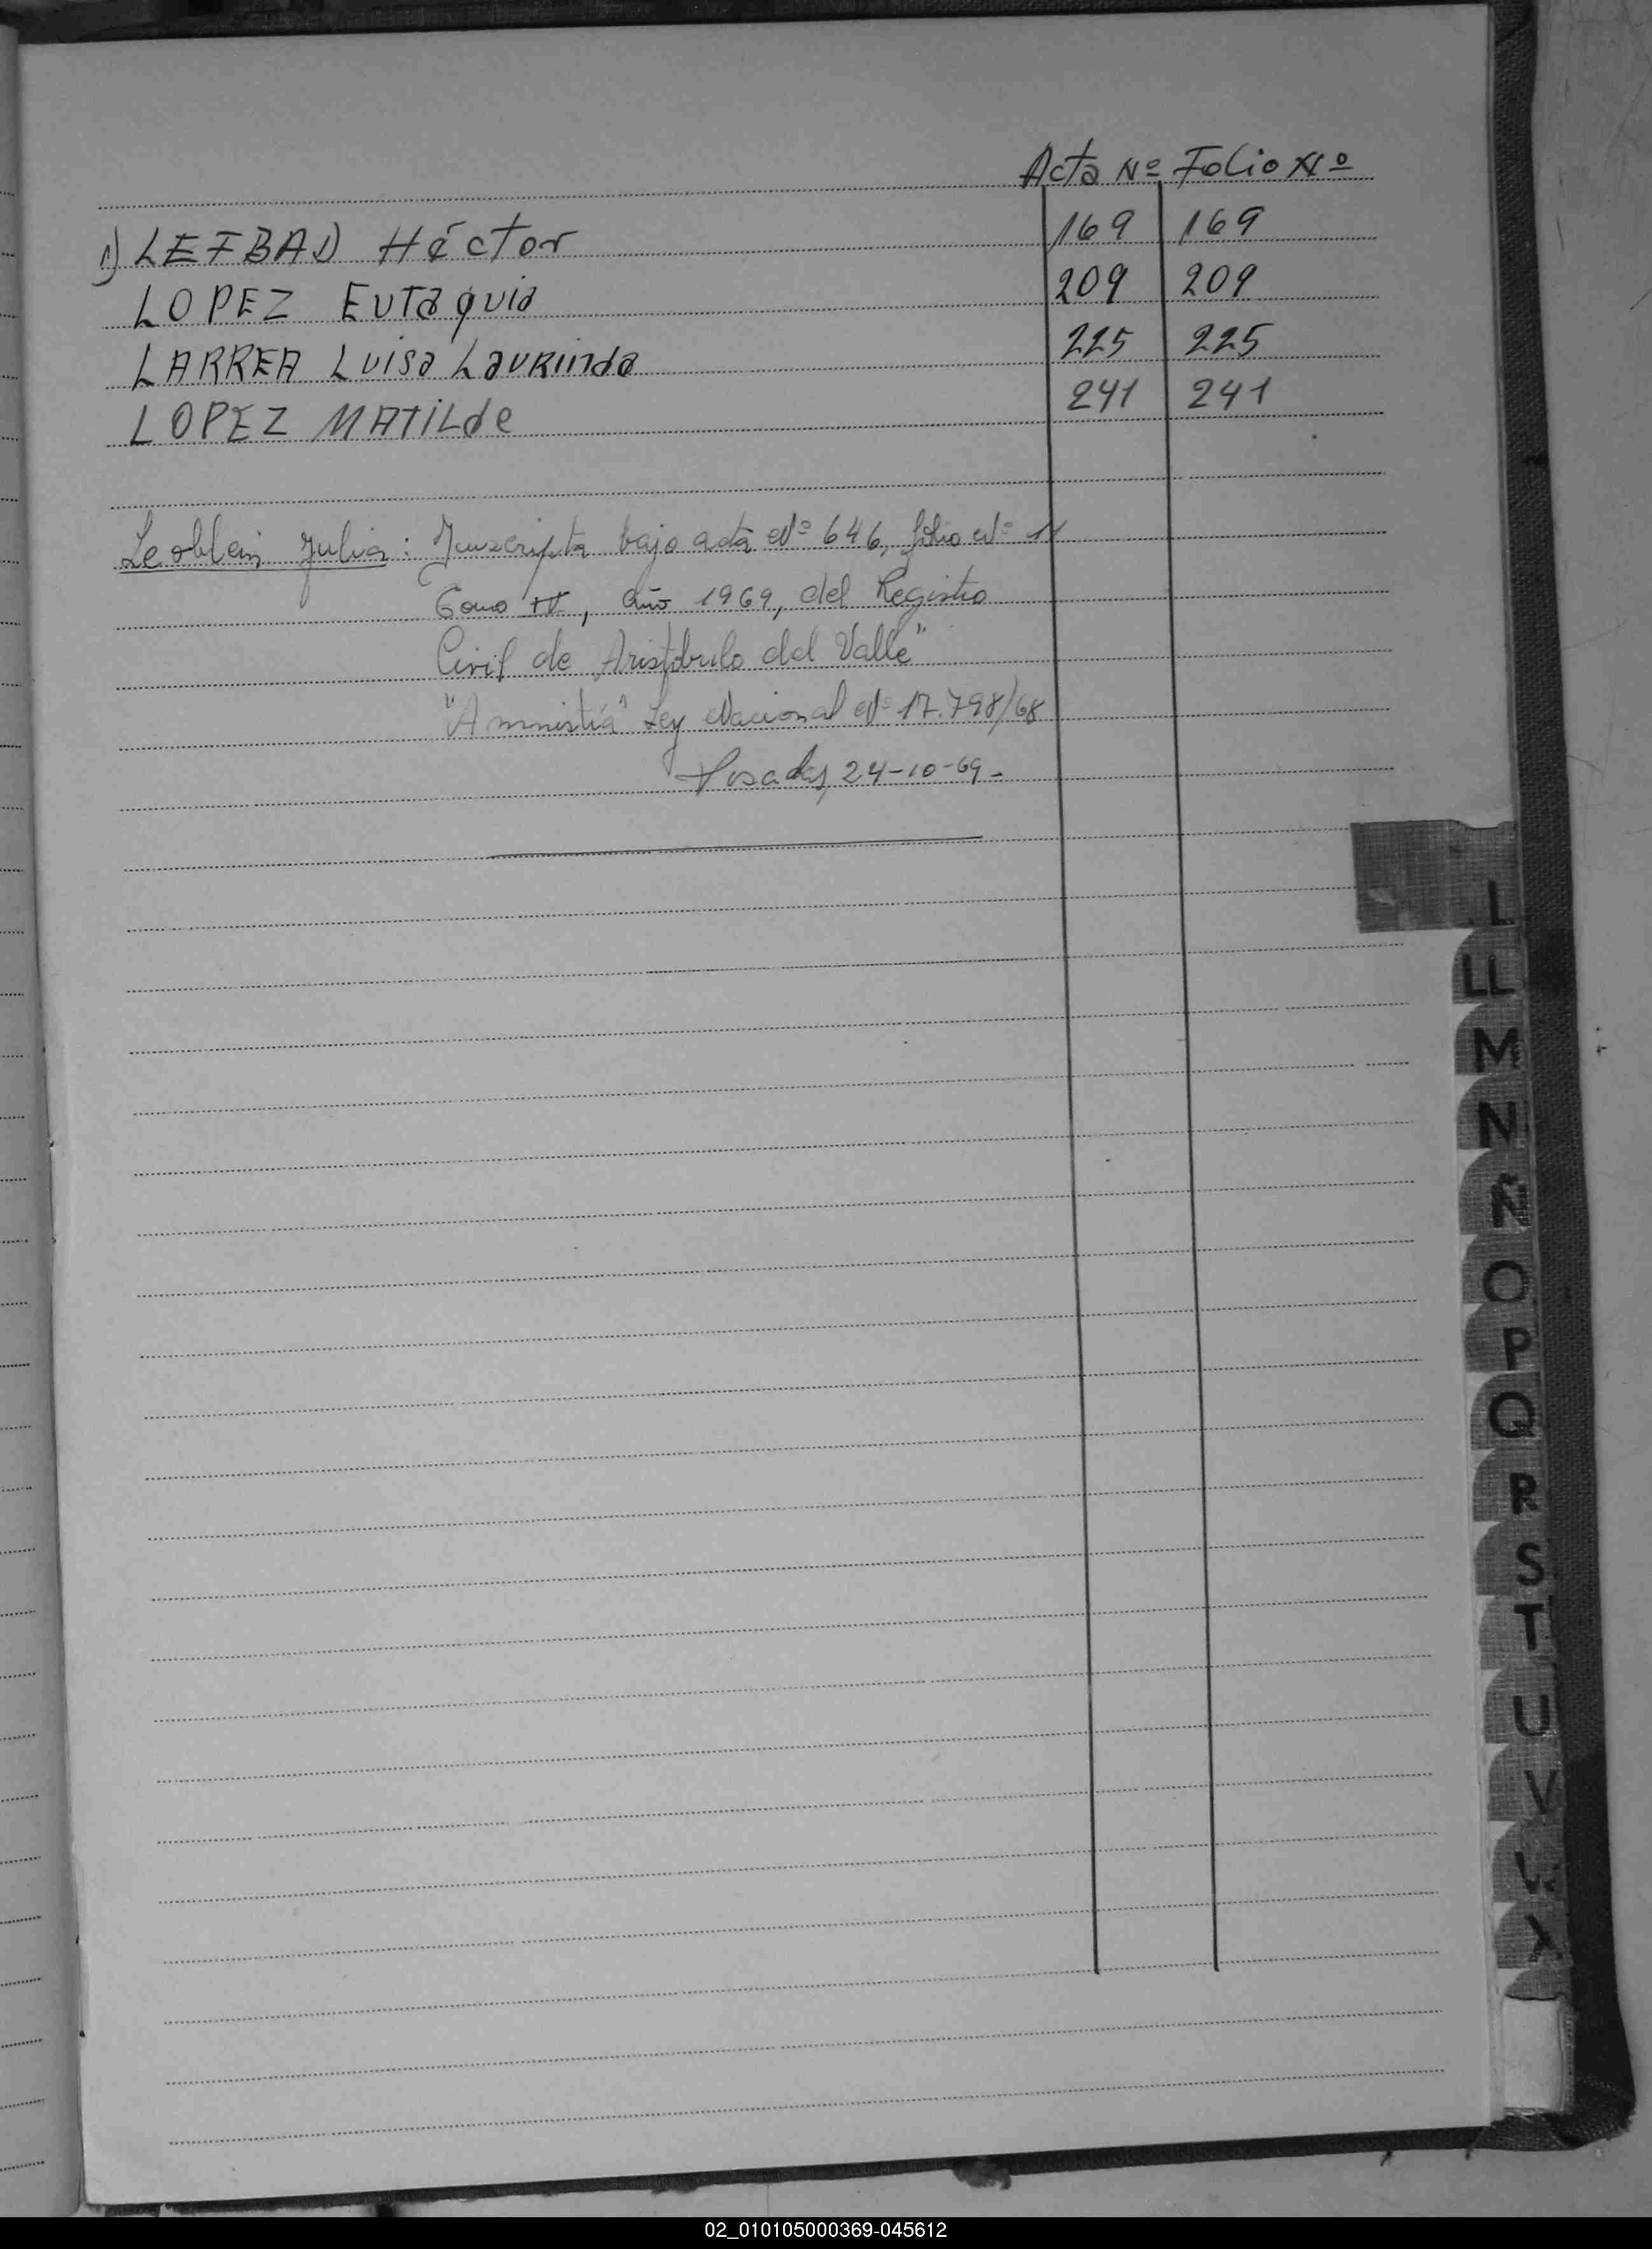 Acta Nº Folio Nº
1) LEFBAD Héctor 169 169
LOPEZ EUTaquia 209 209
LARREA Luisa Laurinda 225 225
LOPEZ MATILde 241 241
Julia: Inscripta bajo acta Nº 646, folio Nº 11
Tomo IV, Año 1969, del Registro
Civil de Aristóbulo del Valle"
"Amnistía" Ley Nacional Nº 17.798/68
Posadas, 24-10-69-
L
LL
M
N
Ñ
O
P
Q
R
S
T
U
V
X
02_010105000369-045612